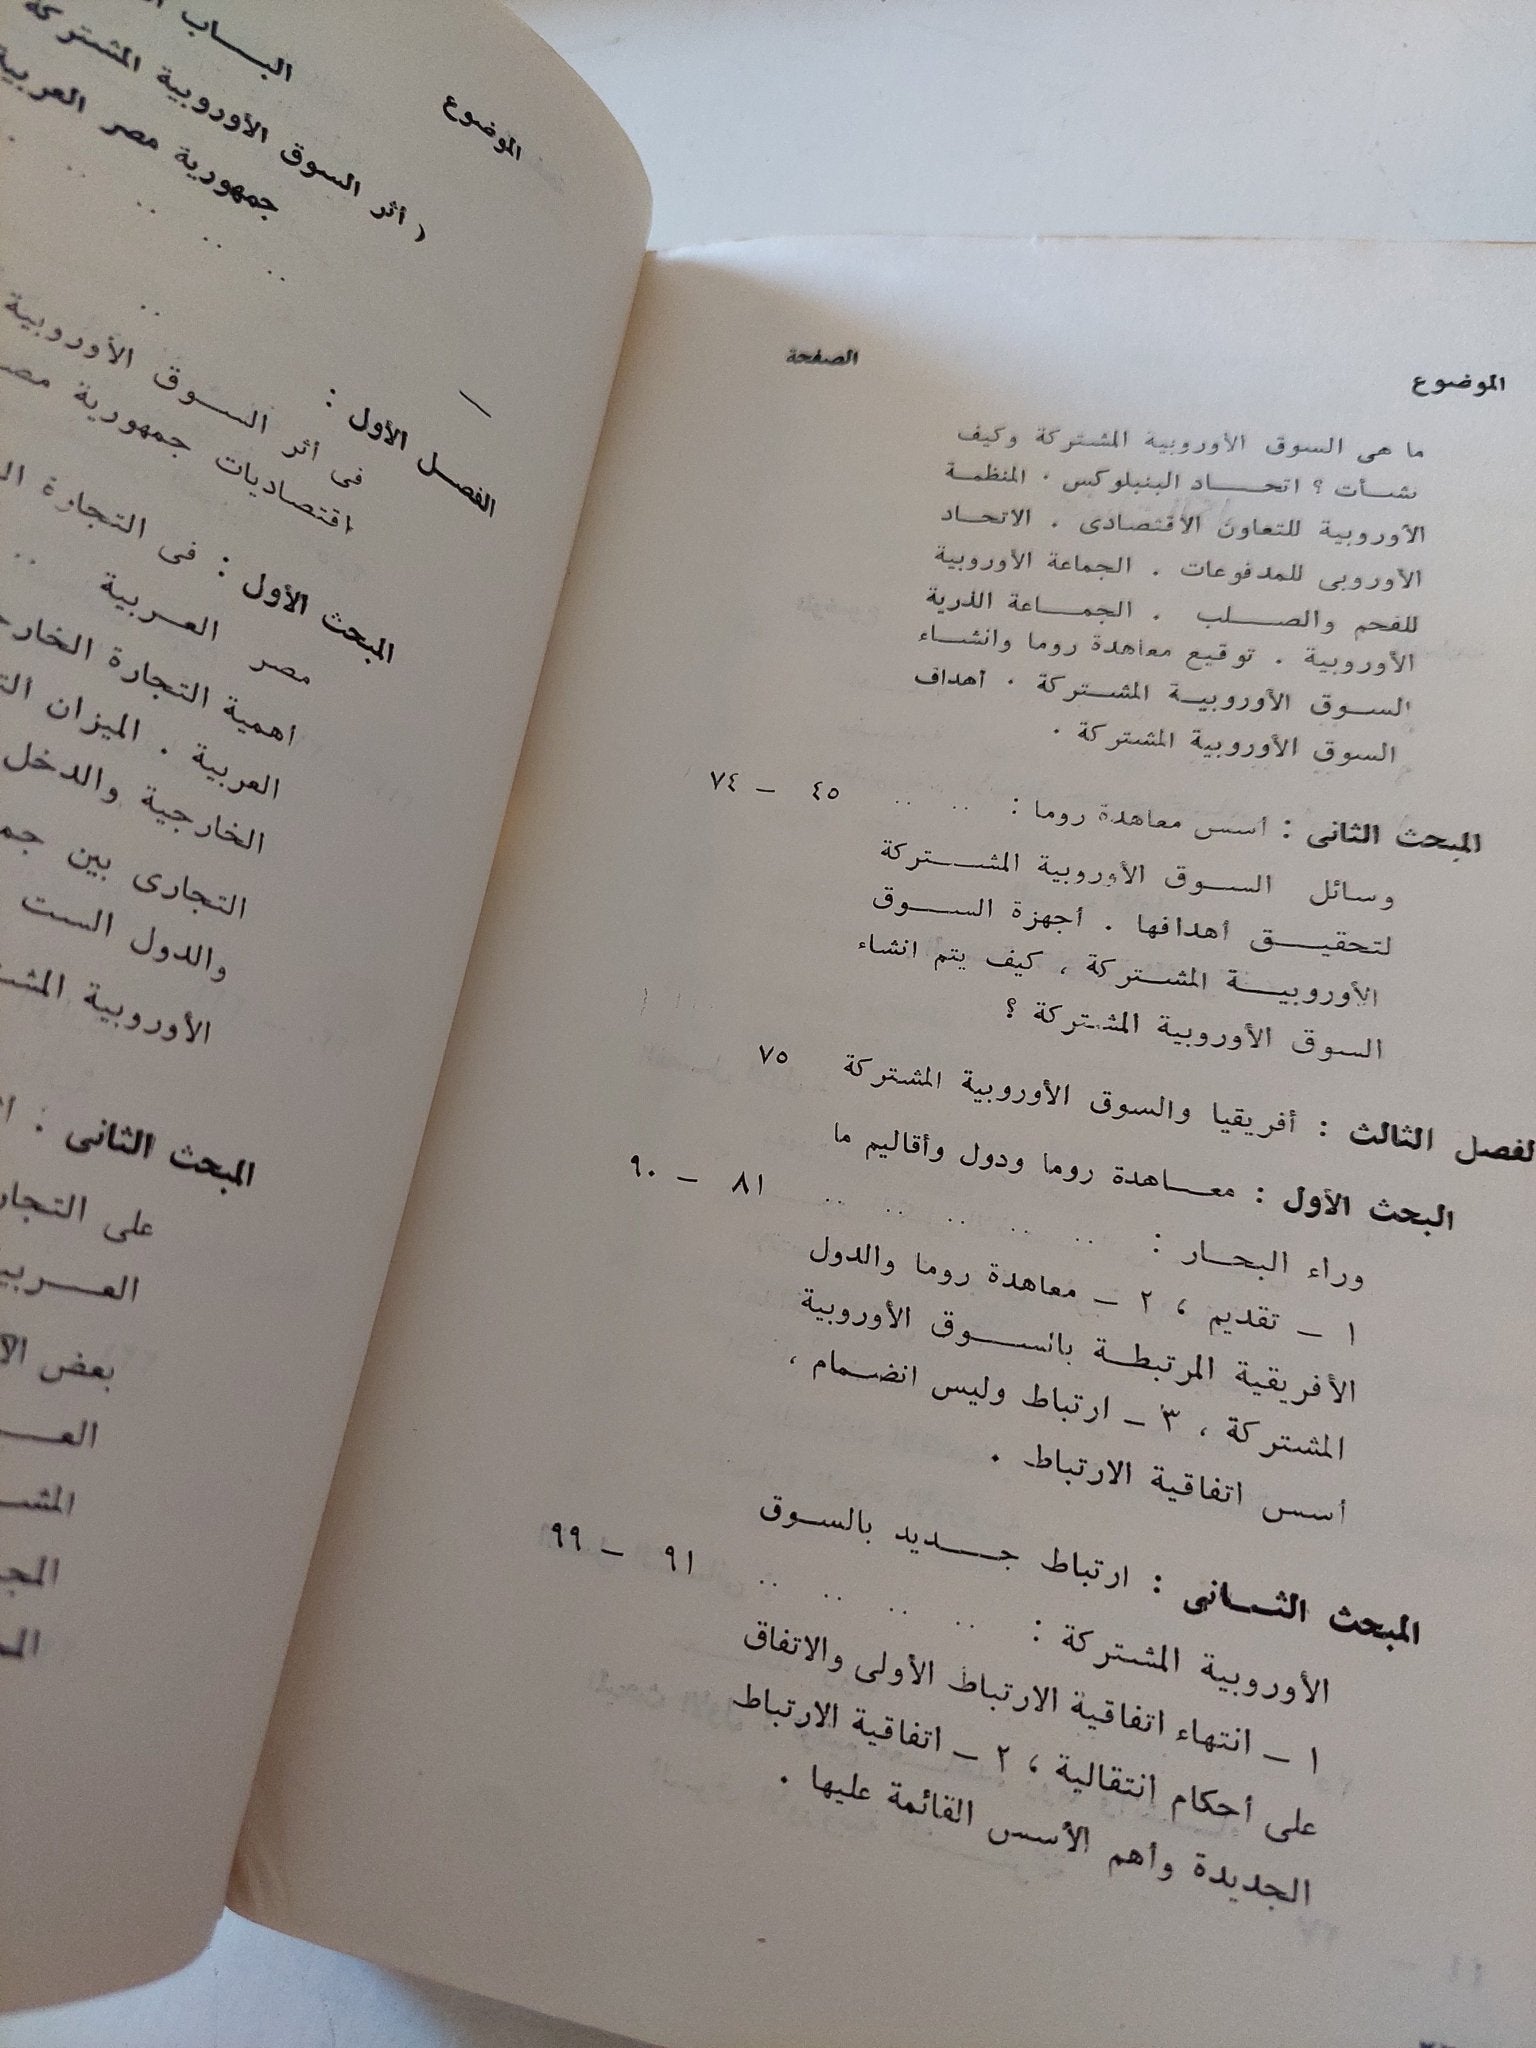 الموضوع الصفحة
ما هى السوق الأوروبية المشتركة وكيف
نشأت ؟ اتحاد البنبلوكس . المنظمة
الأوروبية للتعاون الاقتصادى . الاتحاد
الأوروبى للمدفوعات . الجماعة الأوروبية
للفحم والصلب . الجماعة الذرية
الأوروبية . توقيع معاهدة روما وانشاء
السوق الأوروبية المشتركة . أهداف
السوق الأوروبية المشتركة .
المبحث الثانى : أسس معاهدة روما : .. .. ٤٥ – ٧٤
وسائل السوق الأوروبية المشتركة
لتحقيق أهدافها . أجهزة السوق
الأوروبية المشتركة ، كيف يتم انشاء
السوق الأوروبية المشتركة ؟
لفصل الثالث : أفريقيا والسوق الأوروبية المشتركة ٧٥
البحث الأول : معاهدة روما ودول وأقاليم ما
وراء البحار : .. .. .. .. .. ٨١ – ٩٠
١ – تقديم ، ٢ – معاهدة روما والدول
الأفريقية المرتبطة بالسوق الأوروبية
المشتركة ، ٣ – ارتباط وليس انضمام ،
أسس اتفاقية الارتباط .
المبحث الثانى : ارتباط جديد بالسوق
الأوروبية المشتركة : .. .. .. .. ٩١ – ٩٩
١ – انتهاء اتفاقية الارتباط الأولى والاتفاق
على أحكام انتقالية ، ٢ – اتفاقية الارتباط
الجديدة وأهم الأسس القائمة عليها .
الموضوع
الباب
( أثر السوق الأوروبية المشتركة
جمهورية مصر العربية
الفصل الأول :
فى أثر السوق الأوروبية
اقتصاديات جمهورية مصر
المبحث الأول : فى التجارة
مصر العربية ..
اهمية التجارة
العربية . الميزان
الخارجية والدخل
التجارى بين
والدول الست
الأوروبية
المبحث الثانى :
على
بعض